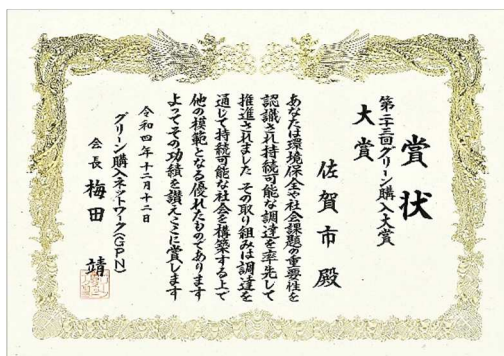 賞状
第二十三回グリーン購入大賞
大賞
佐賀市 殿
あなたは環境保全や社会課題の重要性を
認識され持続可能な調達を率先して
推進されました その取り組みは調達を
通じて持続可能な社会を構築する上で
他の模範となる優れたものであります
よってその功績を讃えここに賞します
令和四年十二月十二日
グリーン購入ネットワーク(GPN)
会長 梅田 靖